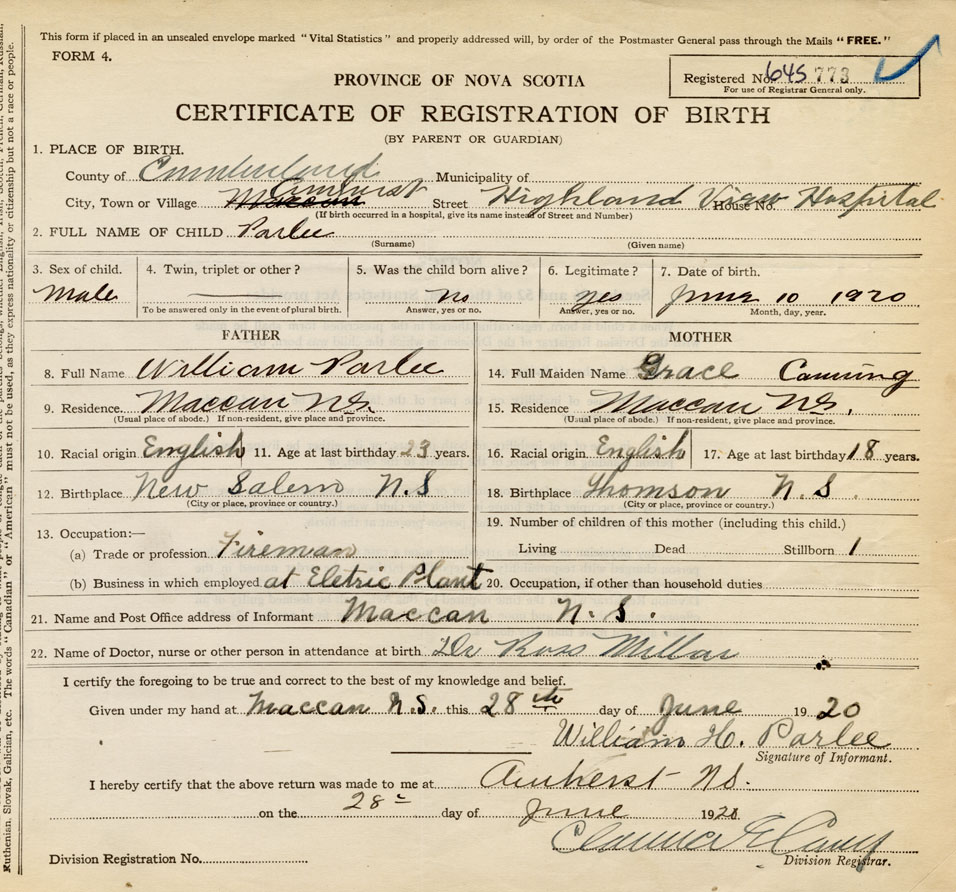 This form if placed in an unsealed envelope marked "Vital Statistics" and properly addressed will, by order of the Postmaster General pass through the Mails "FREE."
FORM 4.
Registered No. 645 773
For use of Registrar General only.
PROVINCE OF NOVA SCOTIA
CERTIFICATE OF REGISTRATION OF BIRTH
(BY PARENT OR GUARDIAN)
1. PLACE OF BIRTH.
County of Cumberland Municipality of
City, Town or Village Maccan Amherst Street Highland View Hospital House No.
(If birth occurred in a hospital, give its name instead of Street and Number)
2. FULL NAME OF CHILD Parlee
(Surname) (Given name)
3. Sex of child. 4. Twin, triplet or other? 5. Was the child born alive? 6. Legitimate? 7. Date of birth.
Male no yes June 10 1920
To be answered only in the event of plural birth. Answer, yes or no. Answer, yes or no. Month, day, year.
FATHER MOTHER
8. Full Name William Parlee 14. Full Maiden Name Grace Canning
9. Residence Maccan N.S. 15. Residence Maccan N.S.
(Usual place of abode.) If non-resident, give place and province. (Usual place of abode.) If non-resident, give place and province.
10. Racial origin English 11. Age at last birthday 23 years. 16. Racial origin English 17. Age at last birthday 18 years.
12. Birthplace New Salem N.S 18. Birthplace Thomson N.S.
(City or place, province or country.) (City or place, province or country.)
13. Occupation:— 19. Number of children of this mother (including this child.)
(a) Trade or profession Fireman Living Dead Stillborn 1
(b) Business in which employed at Eletric Plant 20. Occupation, if other than household duties
21. Name and Post Office address of Informant Maccan N.S.
22. Name of Doctor, nurse or other person in attendance at birth Dr Ross Millar
I certify the foregoing to be true and correct to the best of my knowledge and belief.
Given under my hand at Maccan N.S. this 28th day of June 1920
William H. Parlee
Signature of Informant.
I hereby certify that the above return was made to me at Amherst NS.
on the 28 day of June 192
Division Registration No. Division Registrar.